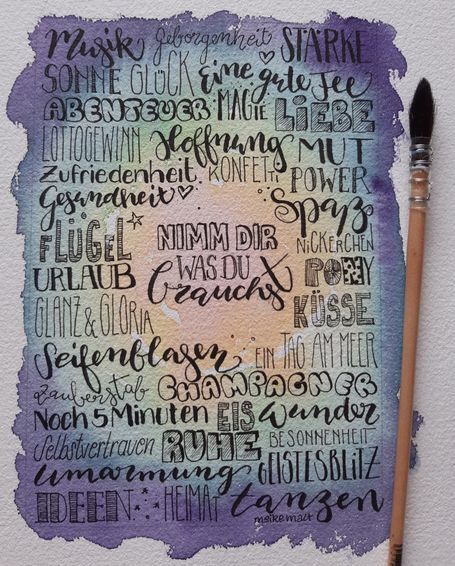 Musik Geborgenheit STÄRKE
SONNE GLÜCK Eine gute Fee
ABENTEUER MAGIE LIEBE
LOTTOGEWINN Hoffnung MUT
Zufriedenheit KONFETTI POWER
Gesundheit Spaß
FLÜGEL NIMM DIR NiCKERCHEN
URLAUB WAS DU PONY
GLANZ & GLORIA brauchst KÜSSE
Seifenblasen EIN TAG AM MEER
Zauberstab CHAMPAGNER
Noch 5 Minuten EIS Wunder
Selbstvertrauen RUHE BESONNENHEIT
umarmung GEISTESBLITZ
IDEEN HEIMAT tanzen
meikemalt